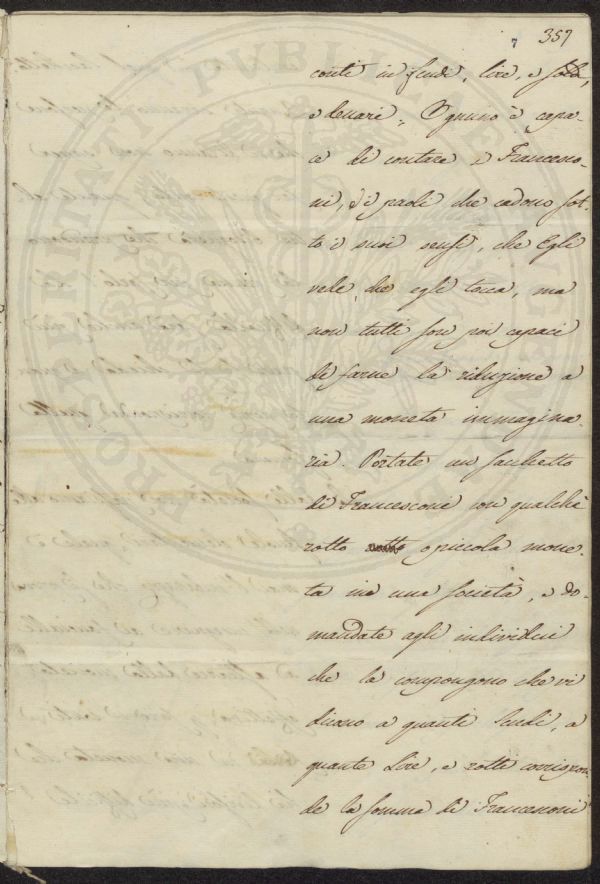 7 357
conti in scudi, lire, e soldi,
e denari; Ognuno è capa-
ce di contare i Francesco-
ni, ed i paoli che cadono sot-
to i suoi sensi, che Egli
vede, che egli tocca, ma
non tutti son poi capaci
di farne la riduzione a
una moneta immagina-
ria. Portate un sacchetto
di Francesconi con qualche
rotto o piccola mone-
ta in una società, e do-
mandate agli individui
che la compongono che vi
dicano a quanti Scudi, a
quante Lire, e rotti corrispon-
de la somma di Francesconi
PROSPERITATI PUBLICAE AUGENDAE